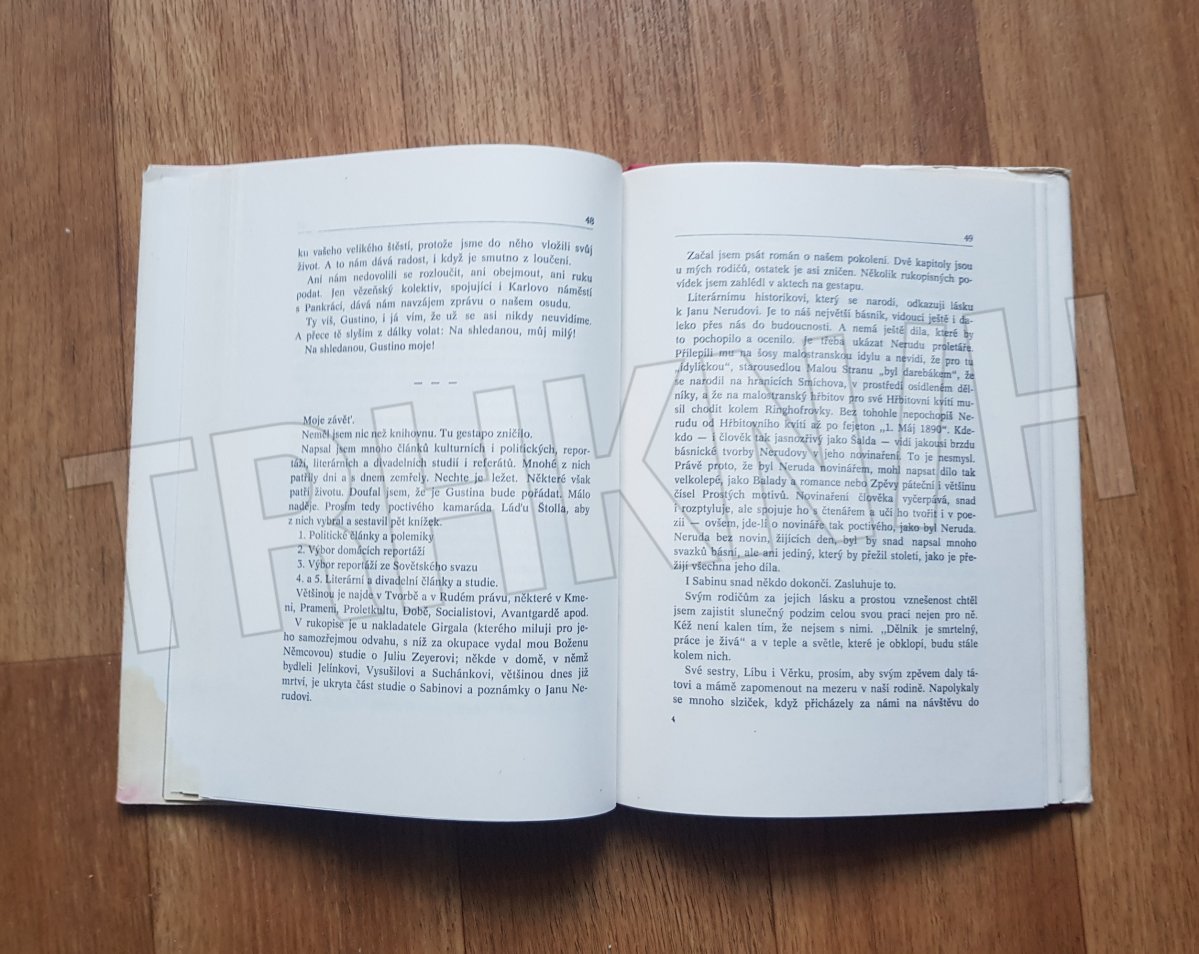 48
ku vašeho velikého štěstí, protože jsme do něho vložili svůj
život. A to nám dává radost, i když je smutno z loučení.
Ani nám nedovolili se rozloučit, ani obejmout, ani ruku
podat. Jen vězeňský kolektiv, spojující i Karlovo náměstí
s Pankrácí, dává nám navzájem zprávu o našem osudu.
Ty víš, Gustino, i já vím, že už se asi nikdy neuvidíme.
A přece tě slyším z dálky volat: Na shledanou, můj milý!
Na shledanou, Gustino moje!
— — —
Moje závěť.
Neměl jsem nic než knihovnu. Tu gestapo zničilo.
Napsal jsem mnoho článků kulturních i politických, repor-
táží, literárních a divadelních studií i referátů. Mnohé z nich
patřily dni a s dnem zemřely. Nechte je ležet. Některé však
patří životu. Doufal jsem, že je Gustina bude pořádat. Málo
naděje. Prosím tedy poctivého kamaráda Láďu Štolla, aby
z nich vybral a sestavil pět knížek.
1. Politické články a polemiky
2. Výbor domácích reportáží
3. Výbor reportáží ze Sovětského svazu
4. a 5. Literární a divadelní články a studie.
Většinou je najde v Tvorbě a v Rudém právu, některé v Kme-
ni, Prameni, Proletkultu, Době, Socialistovi, Avantgardě apod.
V rukopise je u nakladatele Girgala (kterého miluji pro je-
ho samozřejmou odvahu, s níž za okupace vydal mou Boženu
Němcovou) studie o Juliu Zeyerovi; někde v domě, v němž
bydleli Jelínkovi, Vysušilovi a Suchánkovi, většinou dnes již
mrtví, je ukryta část studie o Sabinovi a poznámky o Janu Ne-
rudovi.
49
Začal jsem psát román o našem pokolení. Dvě kapitoly jsou
u mých rodičů, ostatek je asi zničen. Několik rukopisných po-
vídek jsem zahlédl v aktech na gestapu.
Literárnímu historikovi, který se narodí, odkazuji lásku
k Janu Nerudovi. Je to náš největší básník, vidoucí ještě i da-
leko přes nás do budoucnosti. A nemá ještě díla, které by
to pochopilo a ocenilo. Je třeba ukázat Nerudu proletáře.
Přilepili mu na šosy malostranskou idylu a nevidí, že pro tu
„idylickou“, starousedlou Malou Stranu „byl darebákem“, že
se narodil na hranicích Smíchova, v prostředí osídleném děl-
níky, a že na malostranský hřbitov pro své Hřbitovní kvítí mu-
sil chodit kolem Ringhofrovky. Bez tohohle nepochopíš Ne-
rudu od Hřbitovního kvítí až po fejeton „1. Máj 1890“. Kde-
kdo — i člověk tak jasnozřivý jako Šalda — vidí jakousi brzdu
básnické tvorby Nerudovy v jeho novinaření. To je nesmysl.
Právě proto, že byl Neruda novinářem, mohl napsat dílo tak
velkolepé, jako Balady a romance nebo Zpěvy páteční i většinu
čísel Prostých motivů. Novinaření člověka vyčerpává, snad
i rozptyluje, ale spojuje ho s čtenářem a učí ho tvořit i v poe-
zii — ovšem, jde-li o novináře tak poctivého, jako byl Neruda.
Neruda bez novin, žijících den, byl by snad napsal mnoho
svazků básní, ale ani jediný, který by přežil století, jako je pře-
žijí všechna jeho díla.
I Sabinu snad někdo dokončí. Zasluhuje to.
Svým rodičům za jejich lásku a prostou vznešenost chtěl
jsem zajistit slunečný podzim celou svou prací nejen pro ně.
Kéž není kalen tím, že nejsem s nimi. „Dělník je smrtelný,
práce je živá“ a v teple a světle, které je obklopí, budu stále
kolem nich.
Své sestry, Libu i Věrku, prosím, aby svým zpěvem daly tá-
tovi a mámě zapomenout na mezeru v naší rodině. Napolykaly
se mnoho slziček, když přicházely za námi na návštěvu do
4
TRHKNIH